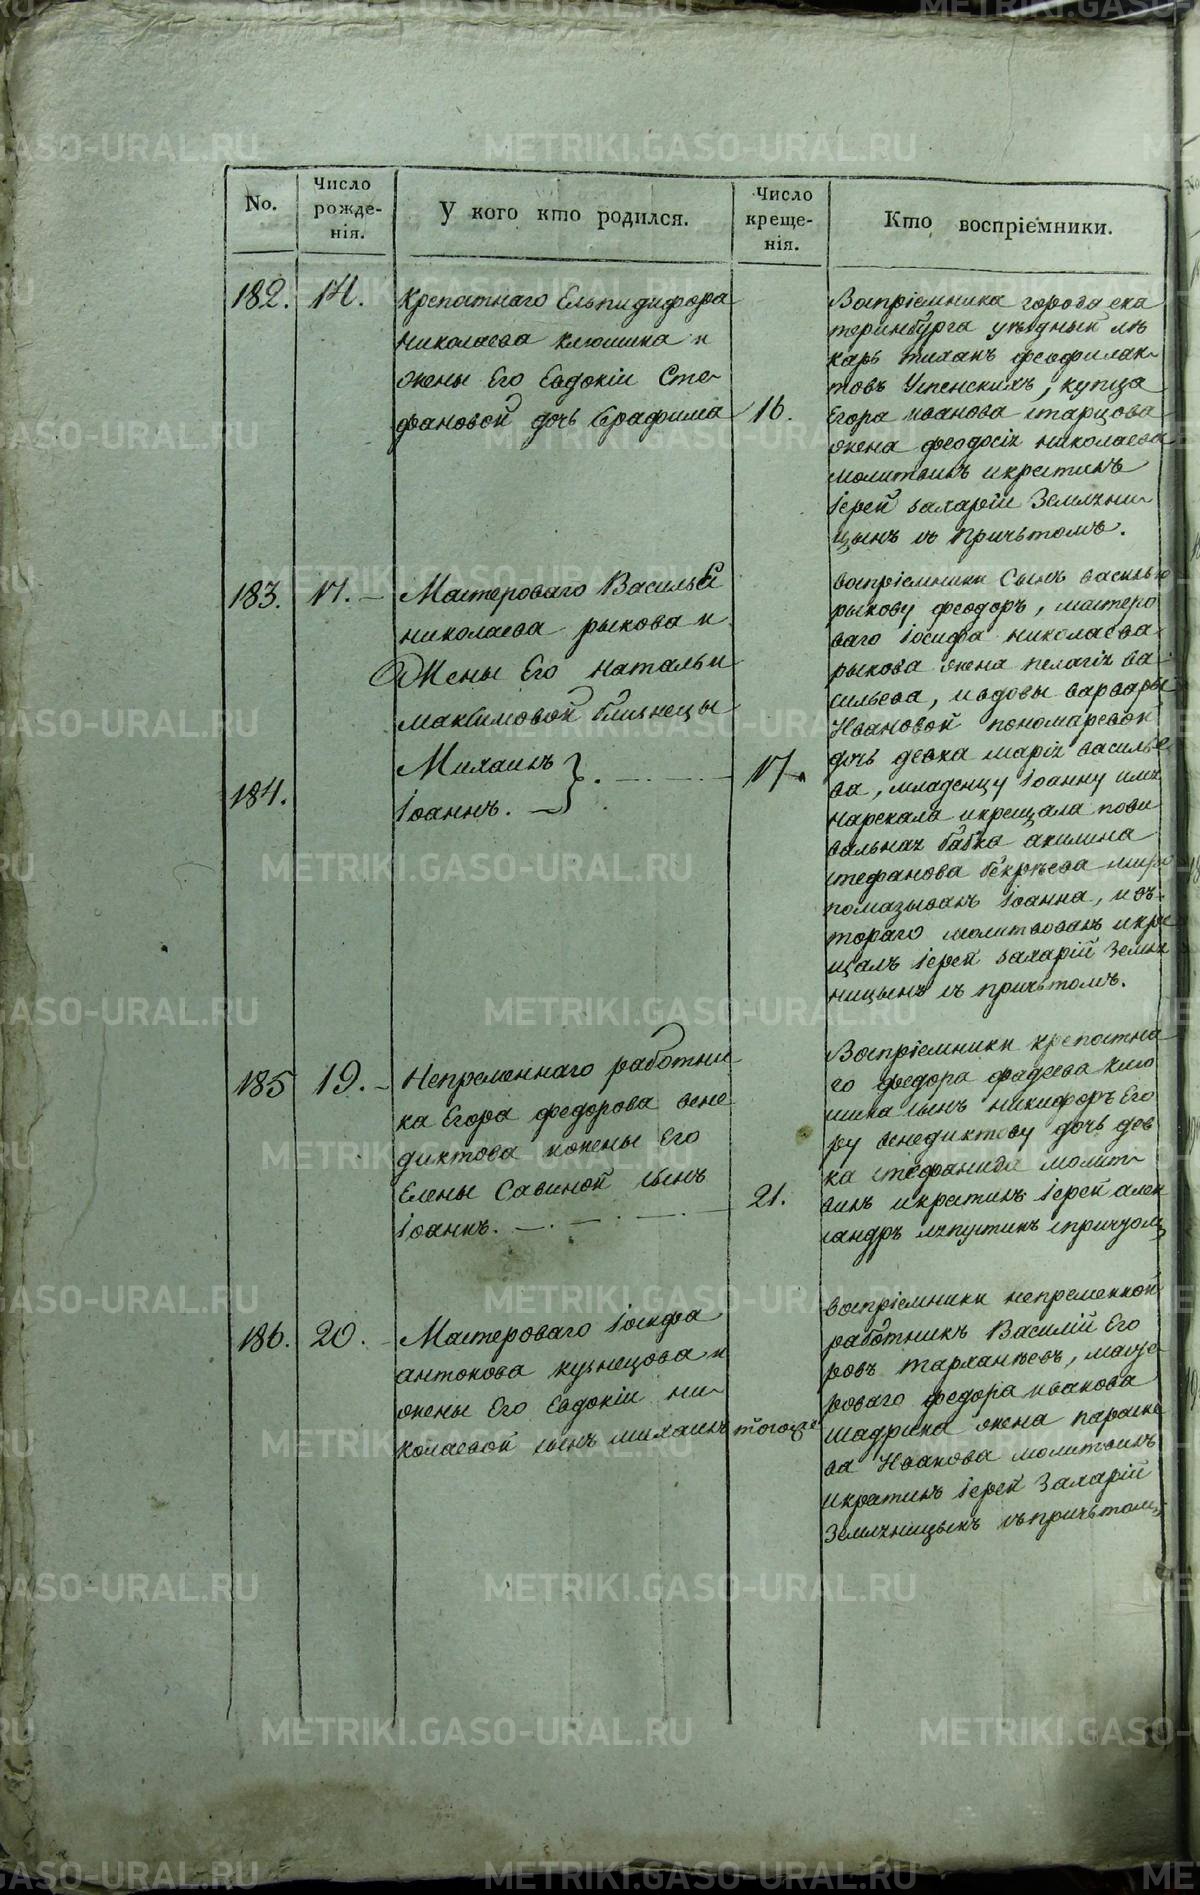 No.
Число рожде-
нія.
У кого кто родился.
Число креще-
нія.
Кто воспріемники.
182.
14.
Крепостнаго Ельпидифора
николаева клюшина и
жены Его Евдокіи Сте-
фановой дочь Серафима
16.
Воспріемника города ека
теринбурга уѣздный лѣ
карь феофилак-
товъ Успенскихъ, купца
Егора иванова старцова
жена феодосія николаева
молитвилъ икрестилъ
іерей захарій Землени-
цынъ съ причьтомъ.
183.
17.
Мастероваго Василья
николаева рыкова и
Жены Его натальи
максимовой близнецы
Михаилъ
184.
Іоаннъ.
17.
воспріемники Сынъ василью
рыкову феодоръ, мастеро
ваго іосифа николаева
рыкова жена пелагія ва
сильева, ивдовы варвары
Ивановой пономаревой
дочь девка марія василье
ва, младенцу іоанну имя
нарекала икрещала пови
вальная бабка акилина
стефанова миро
помазыванъ іоанна, и въ-
тораго молитвовалъ икре
щалъ іерей захарій Земля
ницынъ съ причьтомъ.
185
19.
Непременнаго работни
ка Егора федорова вене
диктова ижены Его
Елены Савиной сынъ
іоаннъ.
21.
Воспріемники крепостна
го федора фадеева клю
шина сынъ никифоръ Его
ру венедиктову дочь дев
ка стефанида молит-
вилъ икрестилъ іерей алек
сандръ ляпустинъ спричтомъ
186.
20.
Мастероваго іосифа
антонова кузнецова и
жены Его Евдокіи ни-
колаевой сынъ михаилъ
тогоже
воспріемники непременной
работникъ Василій Его
ровъ тарханѣевъ, масте
роваго федора иванова
шадрина жена параске
ва Иванова молитвилъ
икрестилъ іерей Захарій
Земляницынъ съпричьтомъ
METRIKI.GASO-URAL.RU